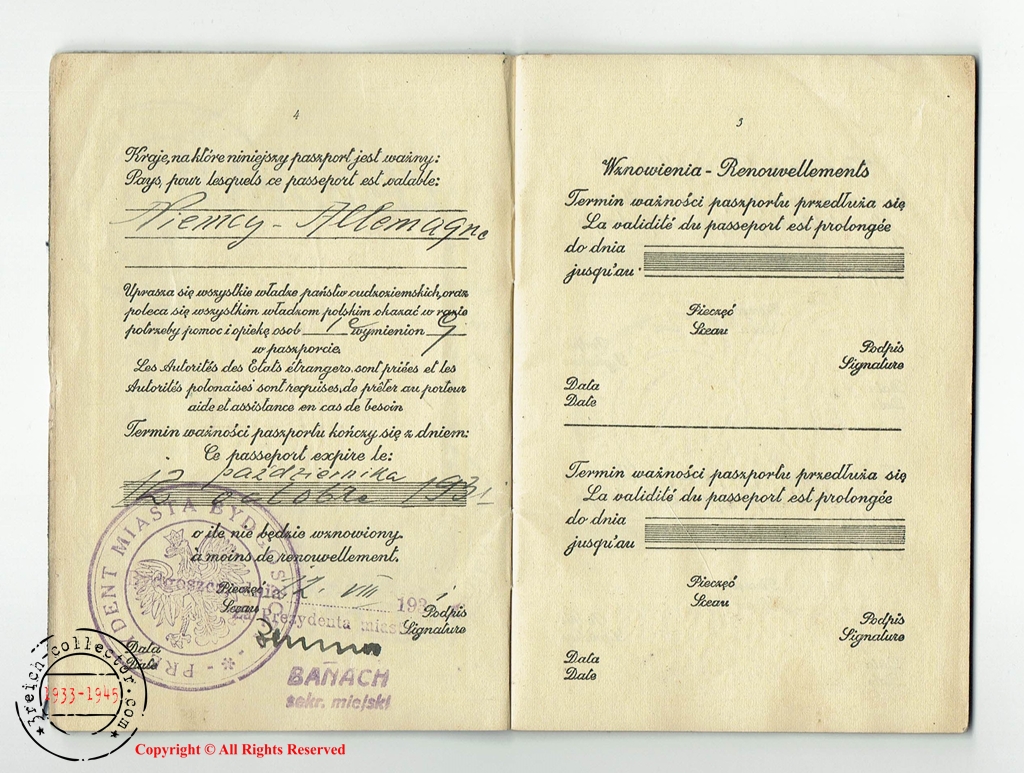 4
Kraje, na które niniejszy paszport jest ważny:
Pays, pour lesquels ce passeport est valable:
Niemcy - Allemagne
Uprasza się wszystkie władze państw cudzoziemskich, oraz
poleca się wszystkim władzom polskim okazać w razie
potrzeby pomoc i opiekę osob ie wymienion ej
w paszporcie.
Les Autorités des Etats étrangers sont priées et les
Autorités polonaises sont requises, de prêter au porteur
aide et assistance en cas de besoin
Termin ważności paszportu kończy się z dniem:
Ce passeport expire le:
października
12 octobre 1931
o ile nie będzie wznowiony.
à moins de renouvellement.
PREZYDENT MIASTA BYDGOSZCZY
Bydgoszcz, dnia 12. VIII 193
Pieczęć
Sceau
Podpis
Signature
za Prezydenta miasta
Data
Date
BAŃACH
sekr. miejski
3
Wznowienia - Renouvellements
Termin ważności paszportu przedłuża się
La validité du passeport est prolongée
do dnia
jusqu'au
Pieczęć
Sceau
Podpis
Signature
Data
Date
Termin ważności paszportu przedłuża się
La validité du passeport est prolongée
do dnia
jusqu'au
Pieczęć
Sceau
Podpis
Signature
Data
Date
3reich-collector.com
1933-1945
Copyright © All Rights Reserved